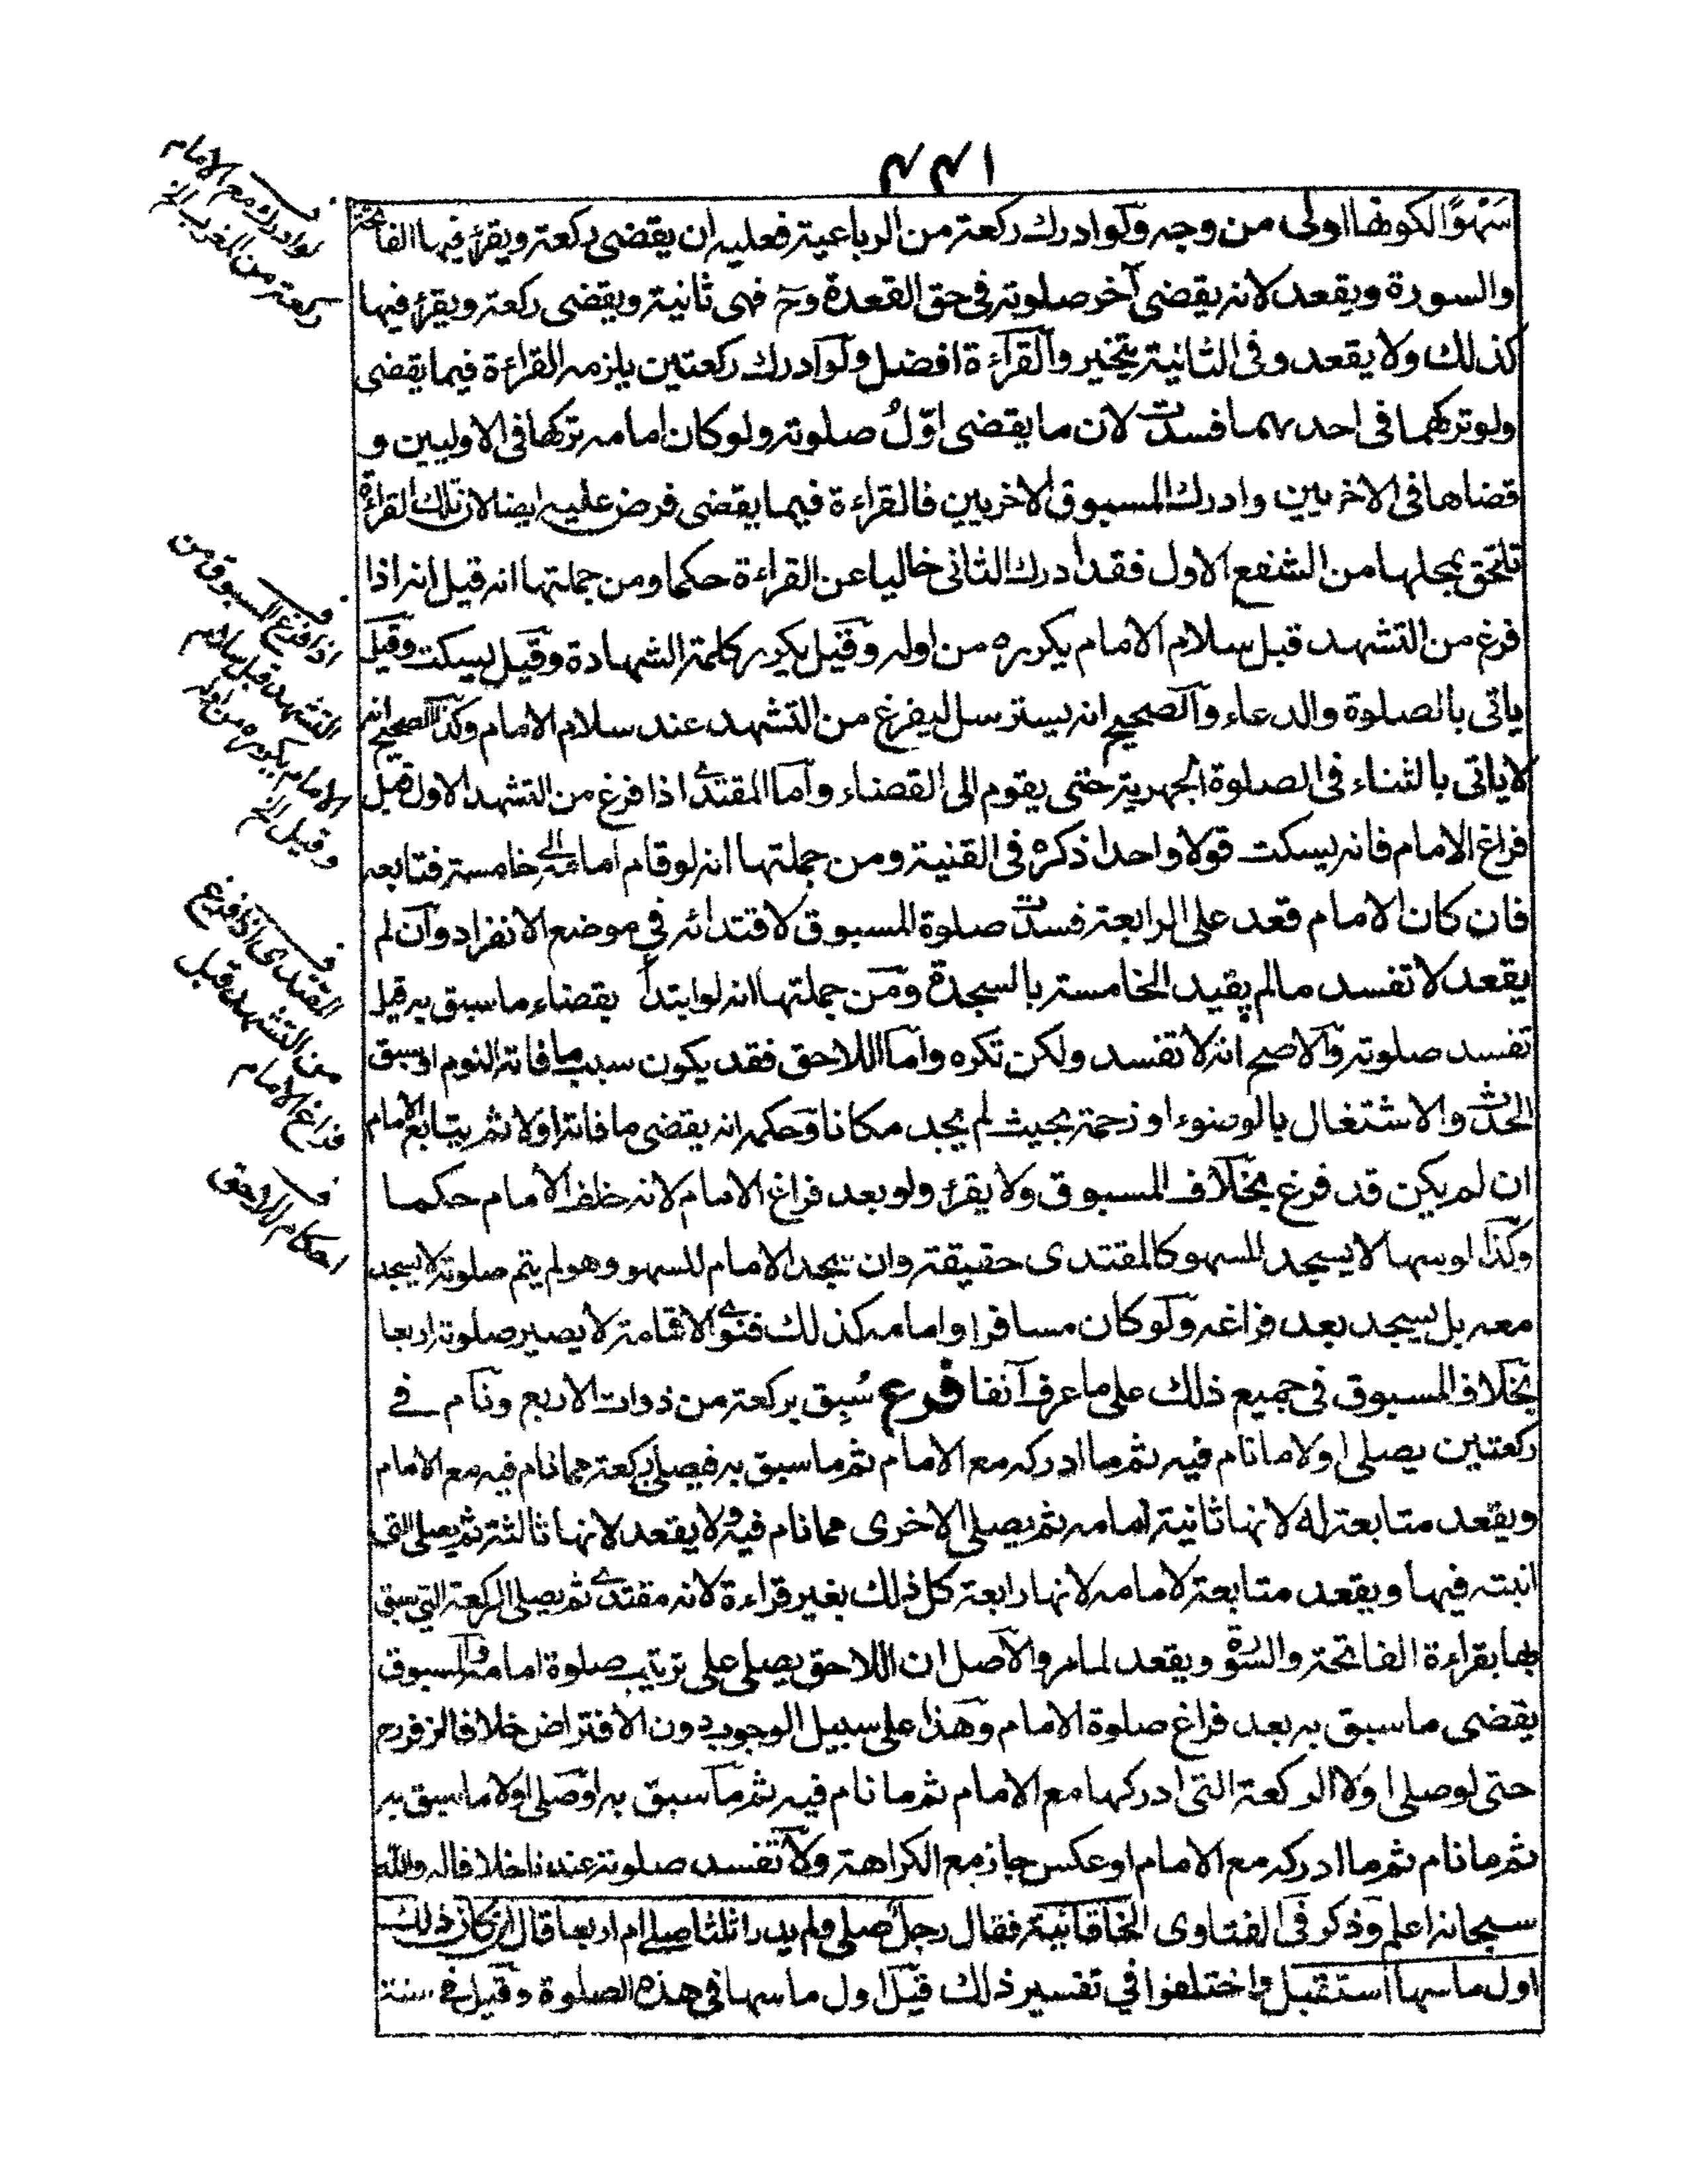 ٤٤١
سَهْوًا لكونها اولى من وجه ولو ادرك ركعة من الرباعية فعليه ان يقضى ركعة ويقرؤ فيها الفاتحة
والسورة ويقعد لانه يقضى آخر صلوته في حق القعدة وح فهى ثانية ويقضى ركعة ويقرؤ فيها
كذلك ولا يقعد وفى الثانية يتخير والقراءة افضل ولو ادرك ركعتين يلزمه القراءة فيما يقضى
ولو تركهما فى احدىهما فسدت لان ما يقضى اوّلُ صلوته ولو كان امامه تركها فى الاوليين و
قضاها فى الاخريين وادرك المسبوق الاخريين فالقراءة فيما يقضى فرض عليه ايضا لان تلك القراءة
تلتحق بمحلها من الشفع الاول فقد ادرك الثانى خاليا عن القراءة حكما ومن جملتها انه قيل انه اذا
فرغ من التشهد قبل سلام الامام يكرره من اوله وقيل يكرر كلمة الشهادة وقيل يسكت وقيل
ياتى بالصلوة والدعاء والصحيح انه يسترسل ليفرغ من التشهد عند سلام الامام وكذا الصحيح انه
لا ياتى بالثناء فى الصلوة الجهرية حتى يقوم الى القضاء واما المقتدى اذا فرغ من التشهد الاول قبل
فراغ الامام فانه يسكت قولا واحدا ذكره فى القنية ومن جملتها انه لو قام امامه الى خامسة فتابعه
فان كان الامام قعد على الرابعة فسدت صلوة المسبوق لاقتدائه في موضع الانفراد وان لم
يقعد لا تفسد مالم يقيد الخامسة بالسجدة ومن جملتها انه لو ابتدأ بقضاء ما سبق به قيل
تفسد صلوته والاصح انه لا تفسد ولكن تكره واما اللاحق فقد يكون سبب ما فاته النوم او سبق
الحدث والاشتغال بالوضوء او زحمة بحيث لم يجد مكانا وحكمه انه يقضى ما فاته اولا ثم يتابع الامام
ان لم يكن قد فرغ بخلاف المسبوق ولا يقرؤ ولو بعد فراغ الامام لانه خلف الامام حكما
وكذا لو سها لا يسجد للسهو كالمقتدى حقيقة وان سجد الامام للسهو وهو لم يتم صلوته لا يسجد
معه بل يسجد بعد فراغه ولو كان مسافرا وامامه كذلك فنوى الاقامة لا يصير صلوته اربعا
بخلاف المسبوق فى جميع ذلك على ما عرف آنفا فرع سُبِق بركعة من ذوات الاربع ونام فى
ركعتين يصلى اولا ما نام فيه ثم ما ادركه مع الامام ثم ما سبق به فيصلى ركعة مما نام فيه مع الامام
ويقعد متابعة له لانها ثانية امامه ثم يصلى الاخرى مما نام فيه ولا يقعد لانها ثالثة ثم يصلى التى
انتبه فيها ويقعد متابعة لامامه لانها رابعة كل ذلك بغير قراءة لانه مقتدى ثم يصلى الركعة التى سبق
بها بقراءة الفاتحة والسورة ويقعد لمامر والاصل ان اللاحق يصلى على ترتيب صلوة امامه والمسبوق
يقضى ما سبق به بعد فراغ صلوة الامام وهذا على سبيل الوجوب دون الافتراض خلافا لزفر رح
حتى لو صلى اولا الركعة التى ادركها مع الامام ثم ما نام فيه ثم ما سبق به او صلى اولا ما سبق به
ثم ما نام ثم ما ادركه مع الامام او عكس جاز مع الكراهة ولا تفسد صلوته عندنا خلافا له والله
سبحانه اعلم وذكر فى الفتاوى الخاقانية فقال رجل صلى ولم يدر اثلثا صلى ام اربعا قال ان كان ذلك
اول ما سها استقبل واختلفوا في تفسير ذلك قيل اول ما سها فى هذه الصلوة وقيل فى سنة
لو ادرك مع الامام
ركعة من المغرب الخ
اذا فرغ المسبوق من
التشهد قبل سلام
الامام يكرره من اوله
وقيل الخ
المقتدى اذا فرغ
من التشهد قبل
فراغ الامام
احكام اللاحق